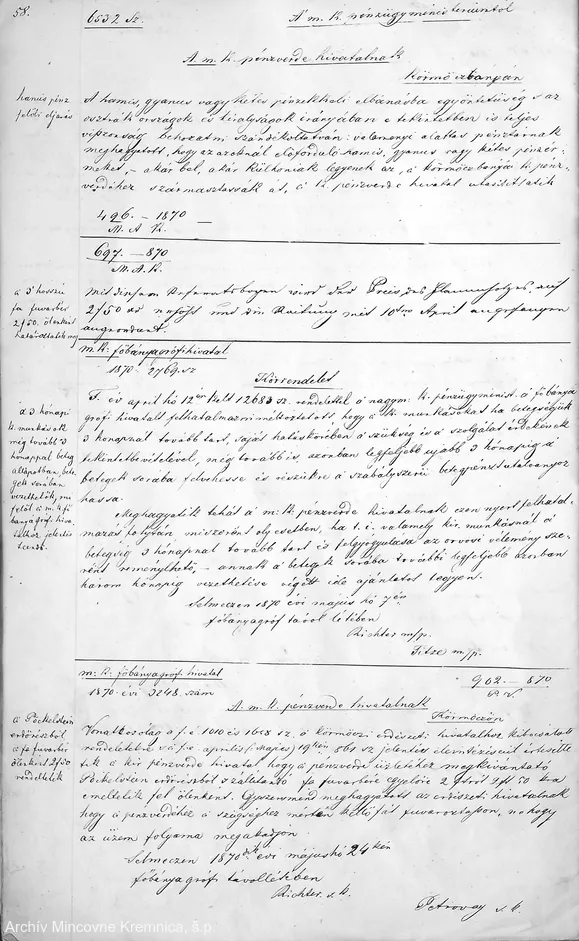 58.
6532 sz.
A m. k. pénzügyministeriumtól
A m. k. pénzverde hivatalnak
Körmöczbányán
hamis pénz
feldi eljárás
A hamis, gyanus vagy kétes pénzekkeli elbánásba egyöntetűség s az
osztrák országok és királyságok irányában e tekintetben is teljes
viszonság behozatni szándékoltatván: valamenyi alattas pénztárnak
meghagyatott, hogy az azoknál előforduló hamis, gyanus vagy kétes pénzér-
meket, – akár bel, akár külhoniak legyenek az, a körmöczbányai k. pénz-
verdéhez származtassák át, a k. pénzverde hivatal utasíttatik
496. – 1870
M. A. K.
697. – 870
M. A. K.
a 3' hosszú
fa fuvarbér
2f50. ölenkint
határoztatik meg
Mit diesem Referatsbogen wird der Preis des Flammholzes, auf
2f50 xr erhöht und die Zahlung mit 10ten April angefangen
angeordnet.
m. k. főbányagrófi hivatal
1870 2769. sz
Körrendelet
F. év april hó 12én kelt 12683 sz. rendelettel a nagym. k. pénzügyminist. a főbánya
grófi hivatalt felhatalmazni méltóztatott, hogy a k. munkásokat ha betegségük
3 hónapnál tovább tart, saját hatáskörében a szükség és a szolgálat érdekének
tekintetbevételével, még tovább is, azonban legfeljebb ujabb 3 hónapig a
betegek sorába felvehesse és részükre a szabályszerü betegpénzt utalványoz
hassa.
a 3 hónapi
k. munkások
még további 3
hónappal beteg
állapotban, bete-
gek sorában
vezethetők, mi
felől a m. k. fő
bányagrófi hiva-
talhoz jelentés
teendő.
Meghagyatik tehát a m. k. pénzverde hivatalnak ezen nyert felhatal-
mazás folytán, miszerént oly esetben, ha t. i. valamely kir. munkásnál a
betegség 3 hónapnál tovább tart és felgyógyulása az orvosi vélemény sze-
rént remenylhető, – annak a betegek sorába további legfeljebb azonban
három hónapig vezethetése végett ide ajánlatot tegyen.
Selmeczen 1870 évi május hó 7én
főbányagróf távol létében
Richter m/p.
Titze m/p.
m. k. főbányagróf. hivatal
1870 évi 3248. szám
902. – 870
P. V.
A. m. k. pénzverde hivatalnak
Körmöczön
a Pöckelstein
erdőrészből
a fa fuvarbér
ölenkint 2f50
rendeltetik
Vonatkozólag a f. é. 1010 és 1658 sz. a körmöczi erdészeti hivatalhoz kibocsátott
rendeletekre
tik a kir pénzverde hivatal, hogy a pénzverde üzletéhez megkivántató
Pöckelstein erdőrészből szállitandó fa fuvarbére egyelőre 2 ftról 2ft 50 kra
emeltetik fel ölenként. Egyszersmind meghagyatott az erdészeti hivatalnak
hogy a pénzverdéhez a szükséghez mérten kellő fát fuvaroztasson, nehogy
az üzem folyama megakadjon.
Selmeczen 1870 évi május hó 24 kén
főbányagrófi távollétében
Richter s. k.
Petrovay s. k.
Archív Mincovne Kremnica, š.p.